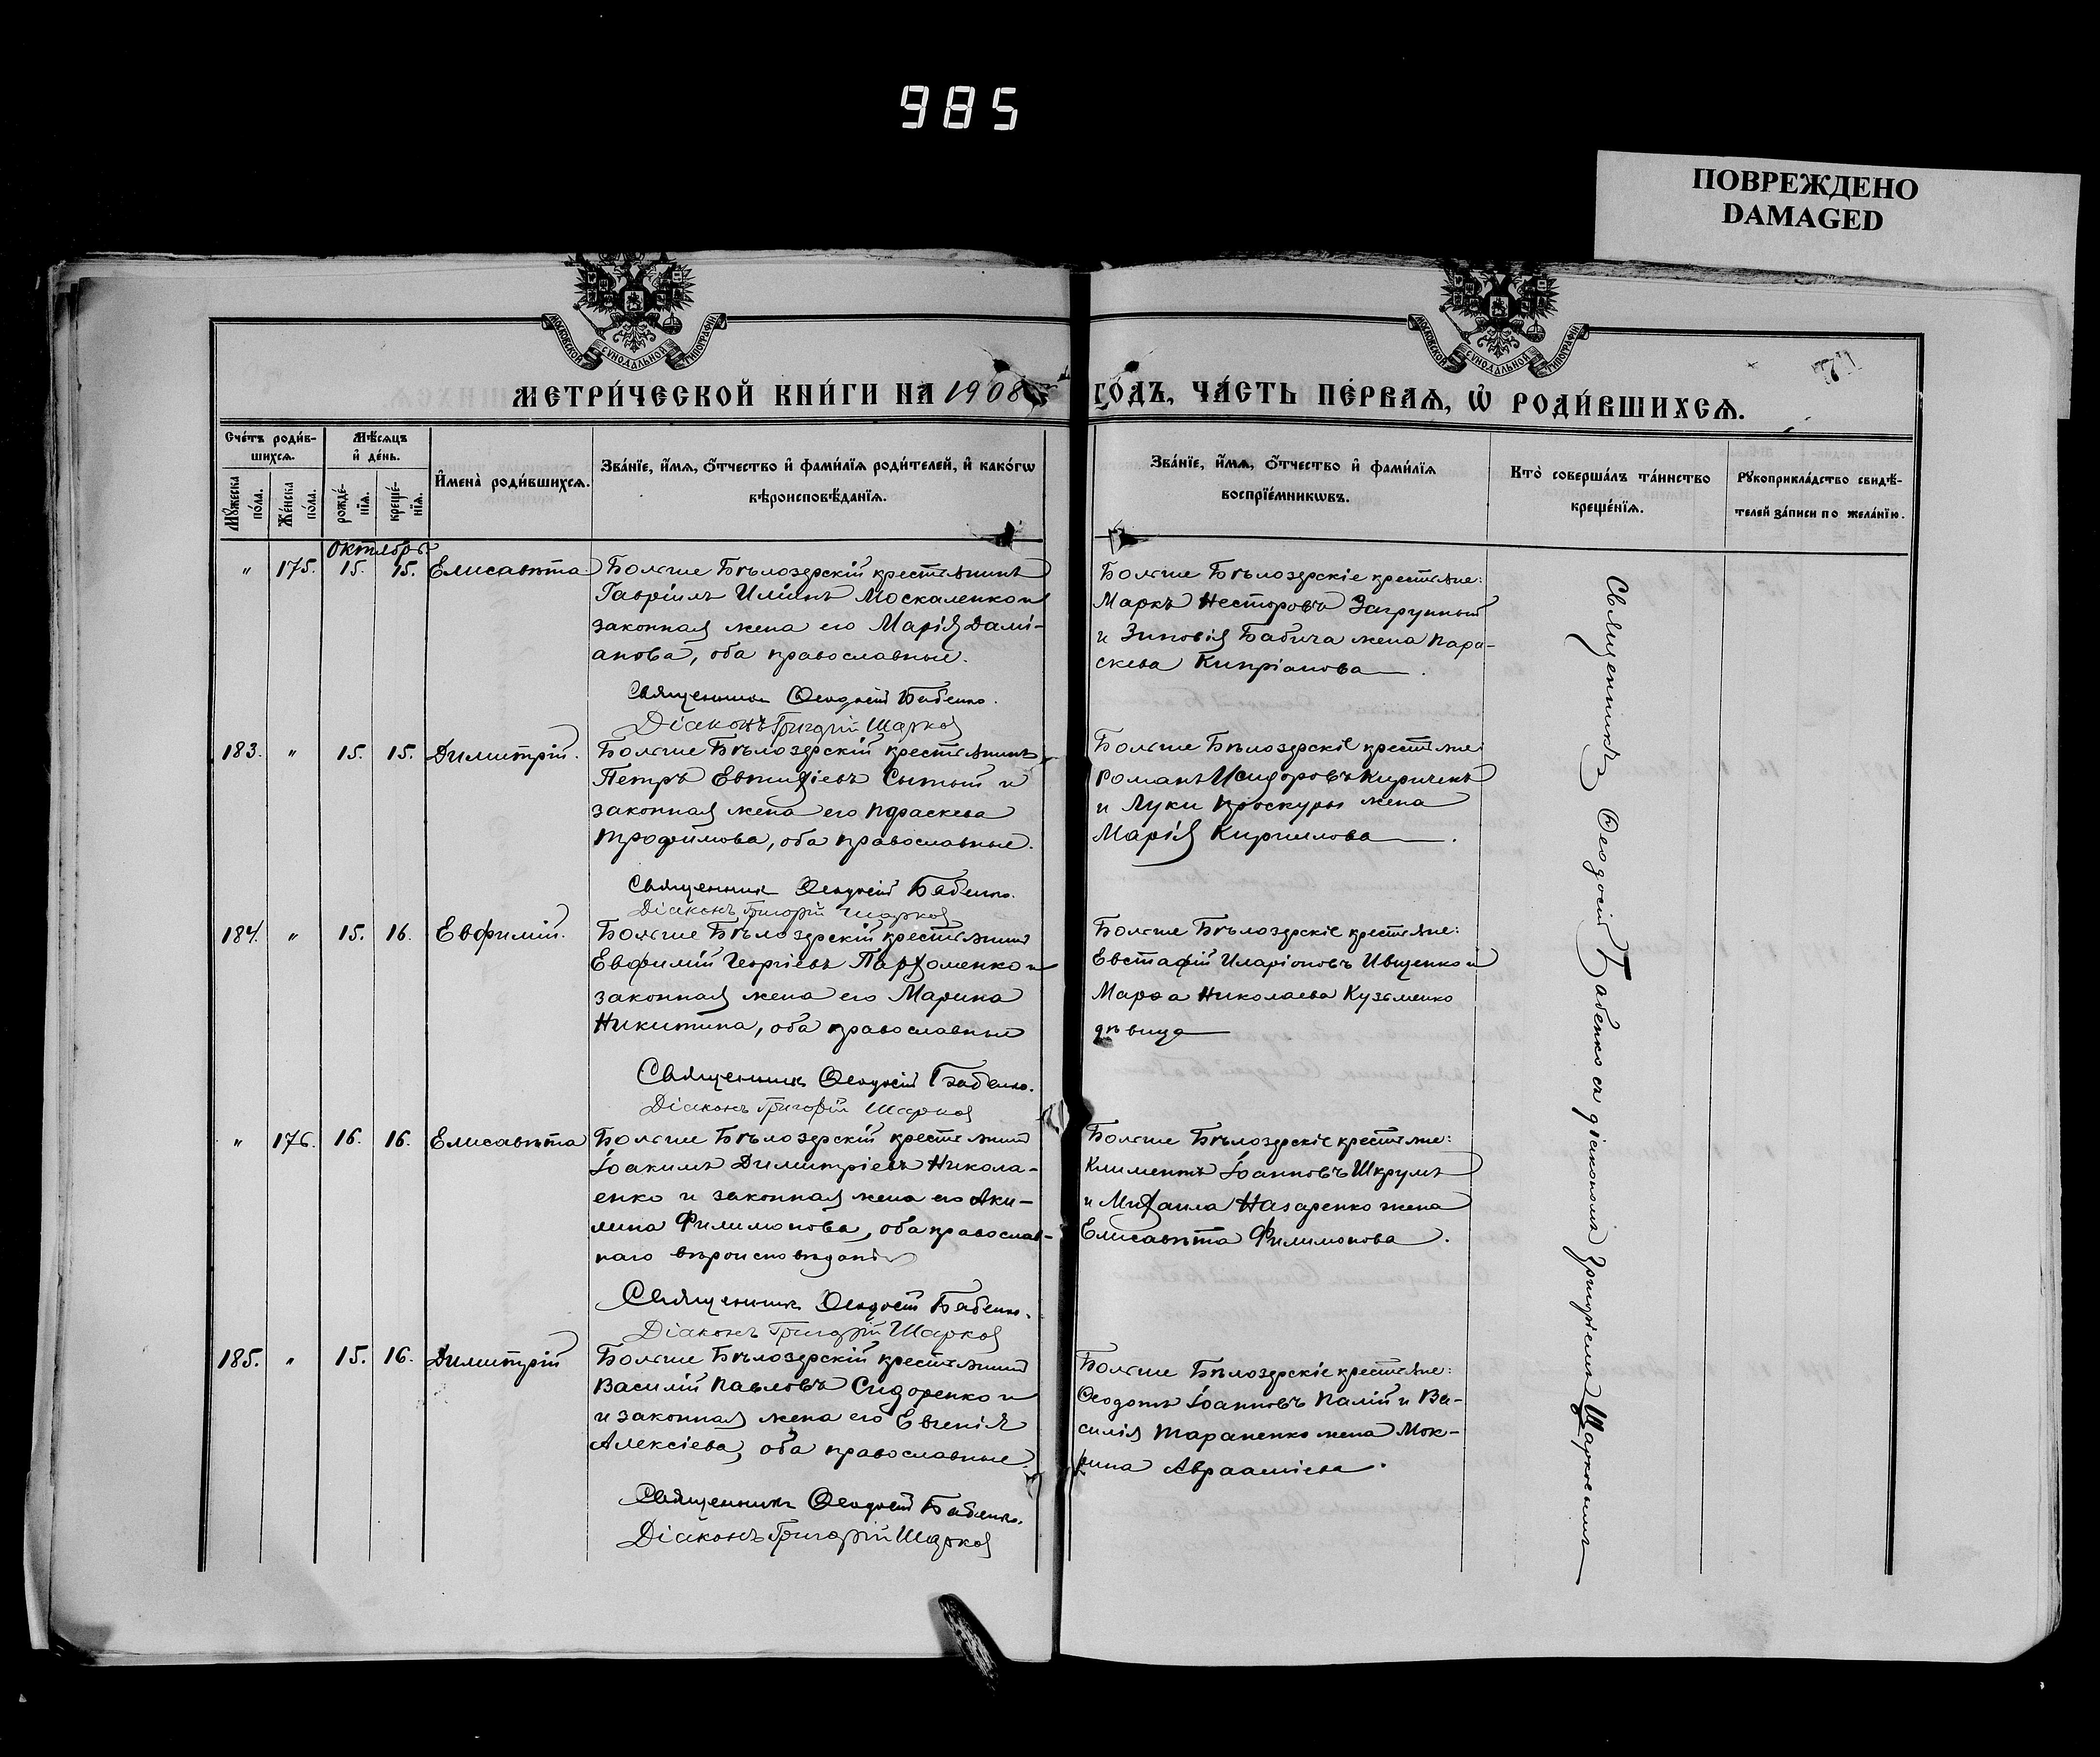 985
ПОВРЕЖДЕНО
DAMAGED
МОСКОВСКОЙ СѴНОДАЛЬНОЙ ТИПОГРАФІИ
МОСКОВСКОЙ СѴНОДАЛЬНОЙ ТИПОГРАФІИ
МЕТРИ́ЧЕСКОЙ КНИ́ГИ НА 1908 ГО́ДЪ, ЧА́СТЬ ПЕ́РВАѦ, Ѡ҆ РОДИ́ВШИХСѦ.
Сче́тъ роди́в-
шихсѧ.
Мѣ́сѧцъ
и҆ де́нь.
Мꙋ́жеска по́ла.
Же́нска по́ла.
рожде́-нїѧ.
креще́-нїѧ.
И҆мена̀ роди́вшихсѧ.
Зва́нїе, и҆́мѧ, ѻ҆́тчество и҆ фами́лїѧ роди́телей, и҆ како́гѡ
вѣроисповѣ́данїѧ.
Зва́нїе, и҆́мѧ, ѻ҆́тчество и҆ фами́лїѧ
воспрїе́мникѡвъ.
Кто̀ соверша́лъ та́инство
креще́нїѧ.
Рꙋкоприкла́дство свидѣ́-
телей за́писи по жела́нїю.
Октябрь
" 175. 15. 15. Елисавѣта
Больше Бѣлозерскій крестьянинъ
Гавріилъ Илiинъ Москаленко и
законная жена его Марія Дамі-
анова, оба православные.
Священникъ Ѳеодосій Бабенко.
Діаконъ Григорій Шарков
Больше Бѣлозерскіе крестьяне:
Маркъ Несторовъ Загрунный
и Зиновія Бабича жена Пара-
скева Кипріанова
183. " 15. 15. Димитрій.
Больше Бѣлозерскій крестьянинъ
Петръ Евтихіевъ Сытый и
законная жена его Параскева
Трофимова, оба православные.
Священникъ Ѳеодосій Бабенко.
Діаконъ Григорій Шарков
Больше Бѣлозерскіе крестьяне
Романъ Исидоровъ Киричекъ
и Луки Проскуры жена
Марія Кириллова
184. " 15. 16. Евфимій.
Больше Бѣлозерскій крестьянинъ
Евфимій Георгіевъ Пархоменко и
законная жена его Марина
Никитина, оба православные
Священникъ Ѳеодосій Бабенко.
Діаконъ Григорій Шарков
Больше Бѣлозерскіе крестьяне:
Евстафій Иларіоновъ Ивщенко и
Марѳа Николаева Кузьменко
дѣвица
" 176. 16. 16. Елисавѣта
Больше Бѣлозерскій крестьянинъ
Іоакимъ Димитріевъ Никола-
енко и законная жена его Аки-
лина Филимонова, оба православ-
наго вѣроисповѣданія
Священникъ Ѳеодосій Бабенко.
Діаконъ Григорій Шарков
Больше Бѣлозерскіе крестьяне:
Климентъ Іоанновъ Шкрумъ
и Михаила Назаренко жена
Елисавѣта Филимонова.
185. " 15. 16. Димитрій
Больше Бѣлозерскій крестьянинъ
Василій Павловъ Сидоренко и
и законная жена его Евгенія
Алексіева, оба православные.
Священникъ Ѳеодосій Бабенко.
Діаконъ Григорій Шарков
Больше Бѣлозерскіе крестьяне:
Ѳеодотъ Іоанновъ Палій и Ва-
силія Тараненко жена Мок-
рина Авраамiева.
Священникъ Ѳеодосій Бабенко съ діакономъ Григоріемъ Шарковымъ